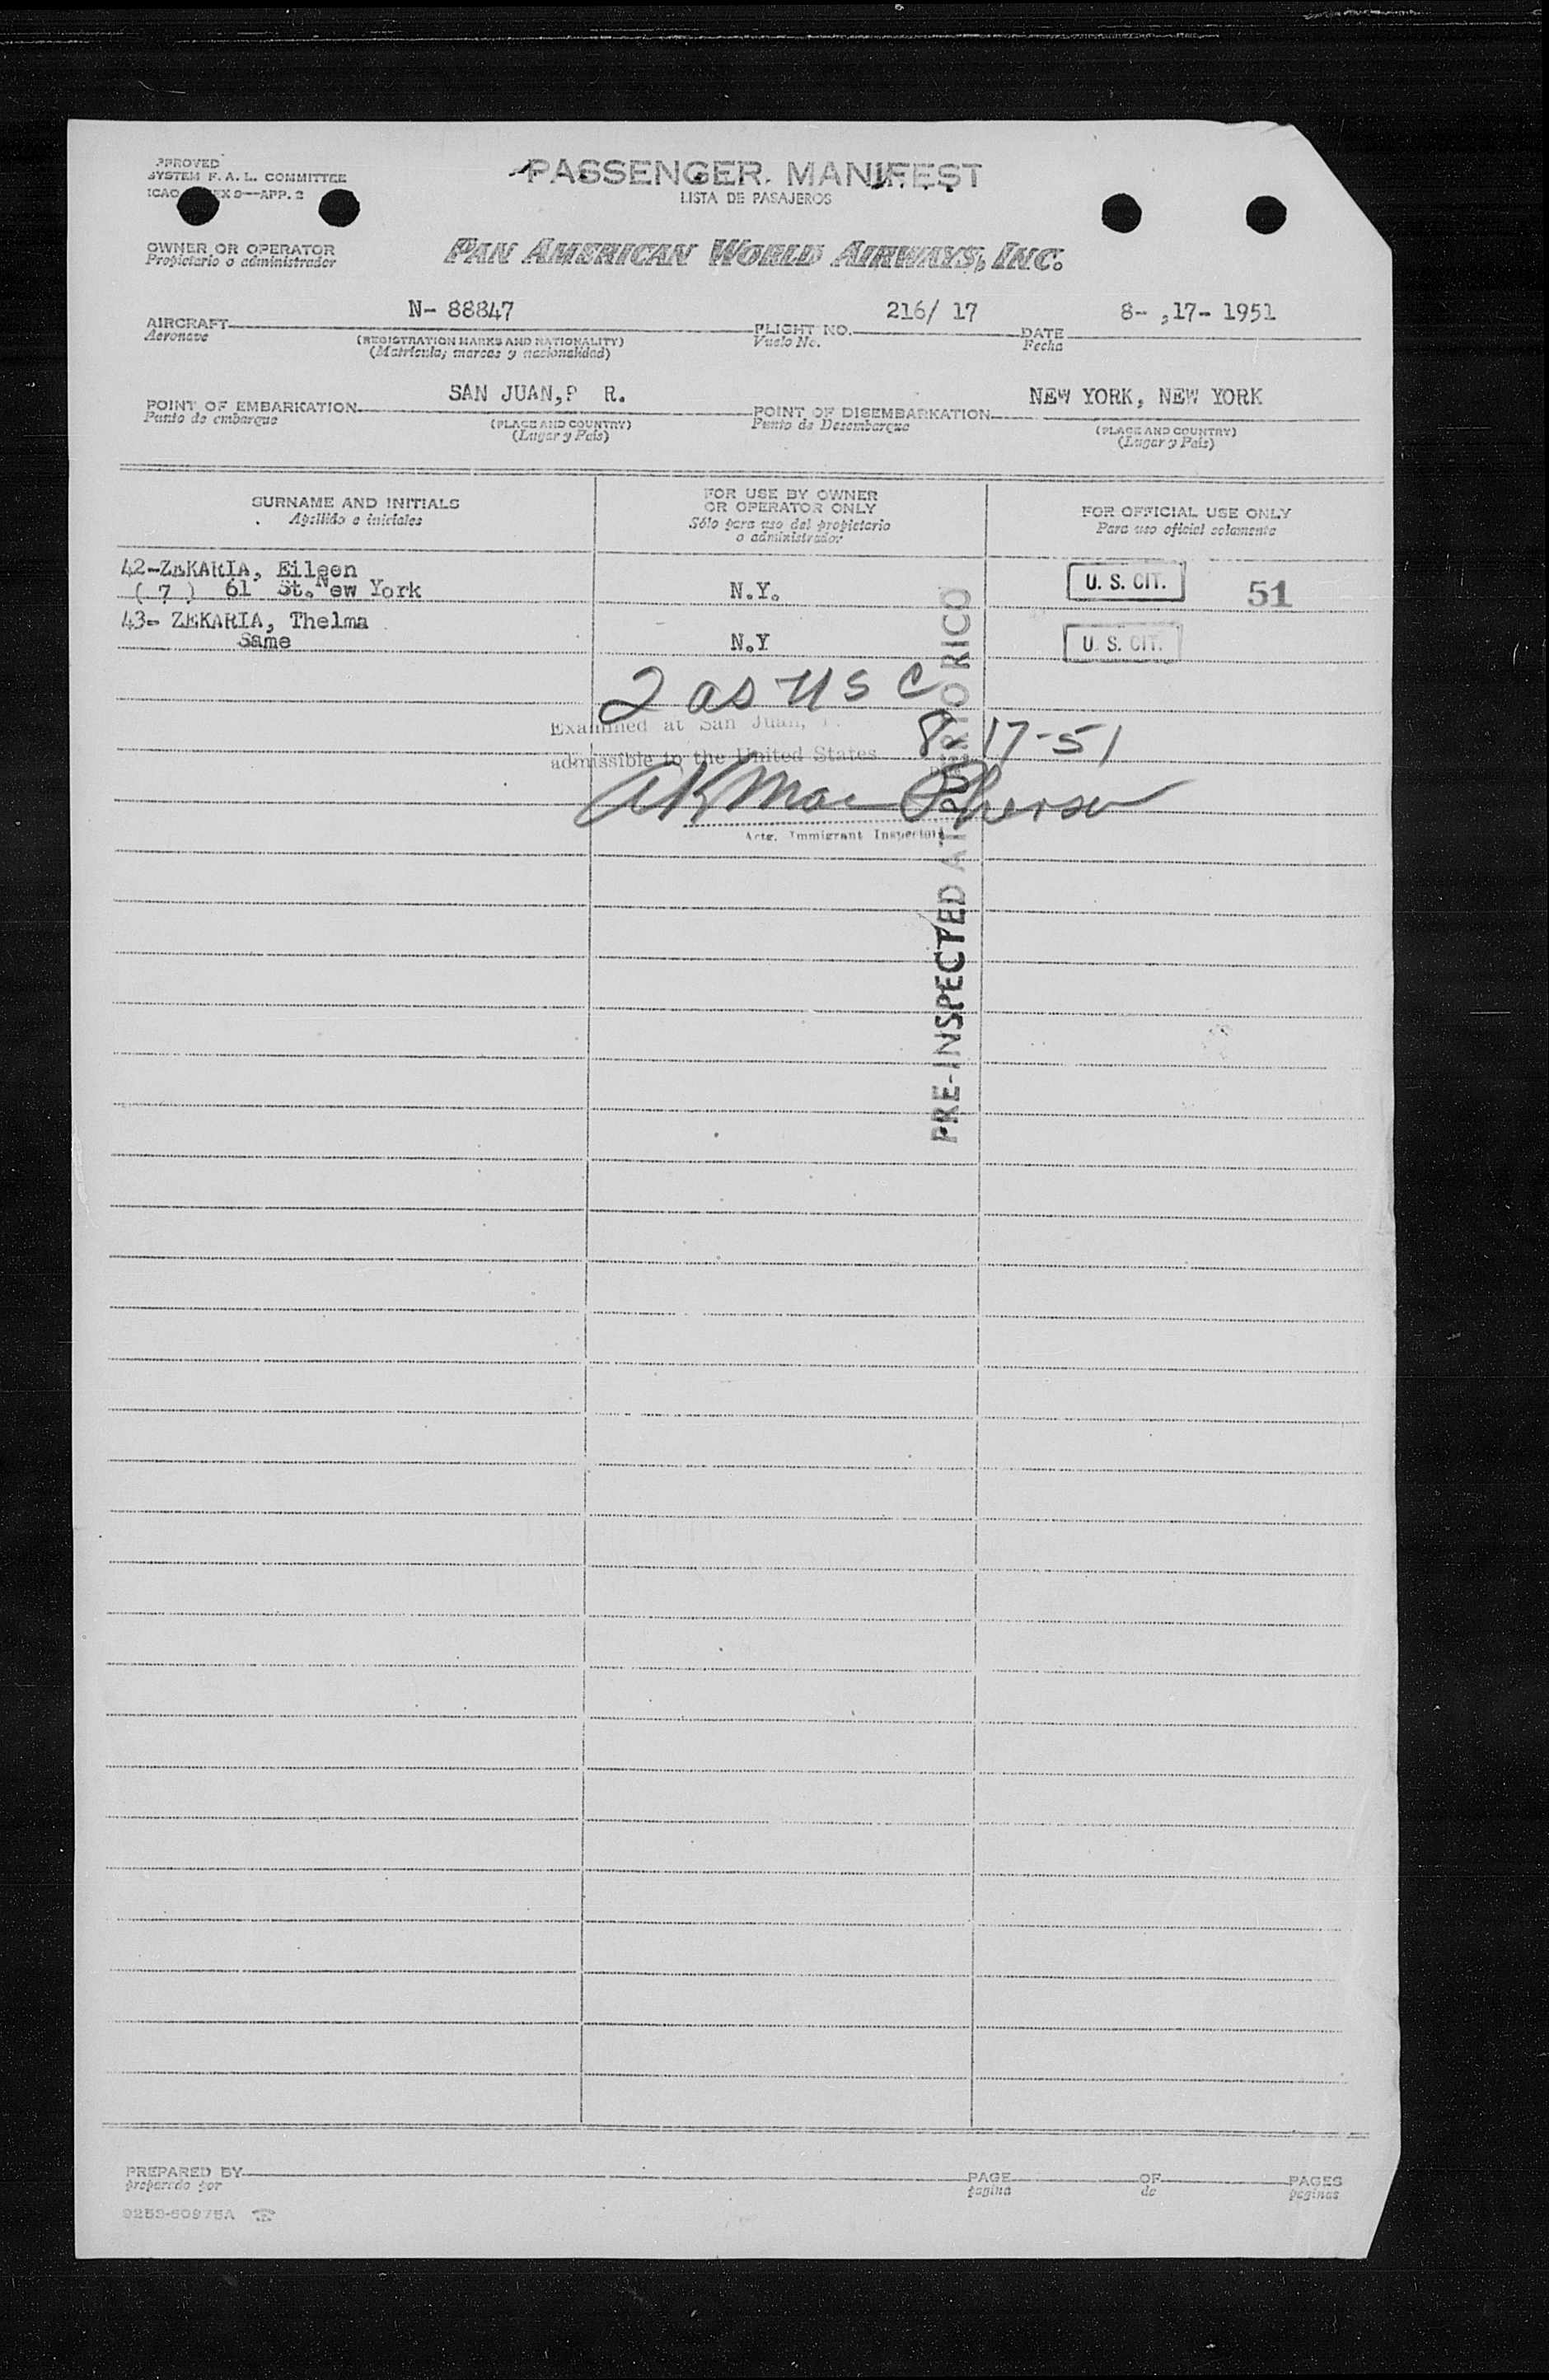 PPROVED
SYSTEM F. A. L. COMMITTEE
ICAO EX 9—APP. 2
PASSENGER MANIFEST
LISTA DE PASAJEROS
OWNER OR OPERATOR
Propietario o administrador
PAN AMERICAN WORLD AIRWAYS, INC.
N- 88847
216/ 17
8- ,17- 1951
AIRCRAFT
Aeronave
(REGISTRATION MARKS AND NATIONALITY)
(Matrícula, marcas y nacionalidad)
FLIGHT NO.
Vuelo No.
DATE
Fecha
SAN JUAN,P R.
NEW YORK, NEW YORK
POINT OF EMBARKATION
Punto de embarque
(PLACE AND COUNTRY)
(Lugar y País)
POINT OF DISEMBARKATION
Punto de Desembarque
(PLACE AND COUNTRY)
(Lugar y País)
SURNAME AND INITIALS
Apellido e iniciales
FOR USE BY OWNER
OR OPERATOR ONLY
Sólo para uso del propietario
o administrador
FOR OFFICIAL USE ONLY
Para uso oficial solamente
42-ZEKARIA, Eileen
( 7 ) 61 St. New York
N.Y.
U. S. CIT.
51
43- ZEKARIA, Thelma
Same
N.Y
U. S. CIT.
2 as U S C
Examined at San Juan,
8-17-51
admissible to the United States
A K MacPherson
Actg. Immigrant Inspector
PRE-INSPECTED AT PUERTO RICO
PREPARED BY
preparado por
PAGE
pagina
OF
de
PAGES
paginas
9253-60975A